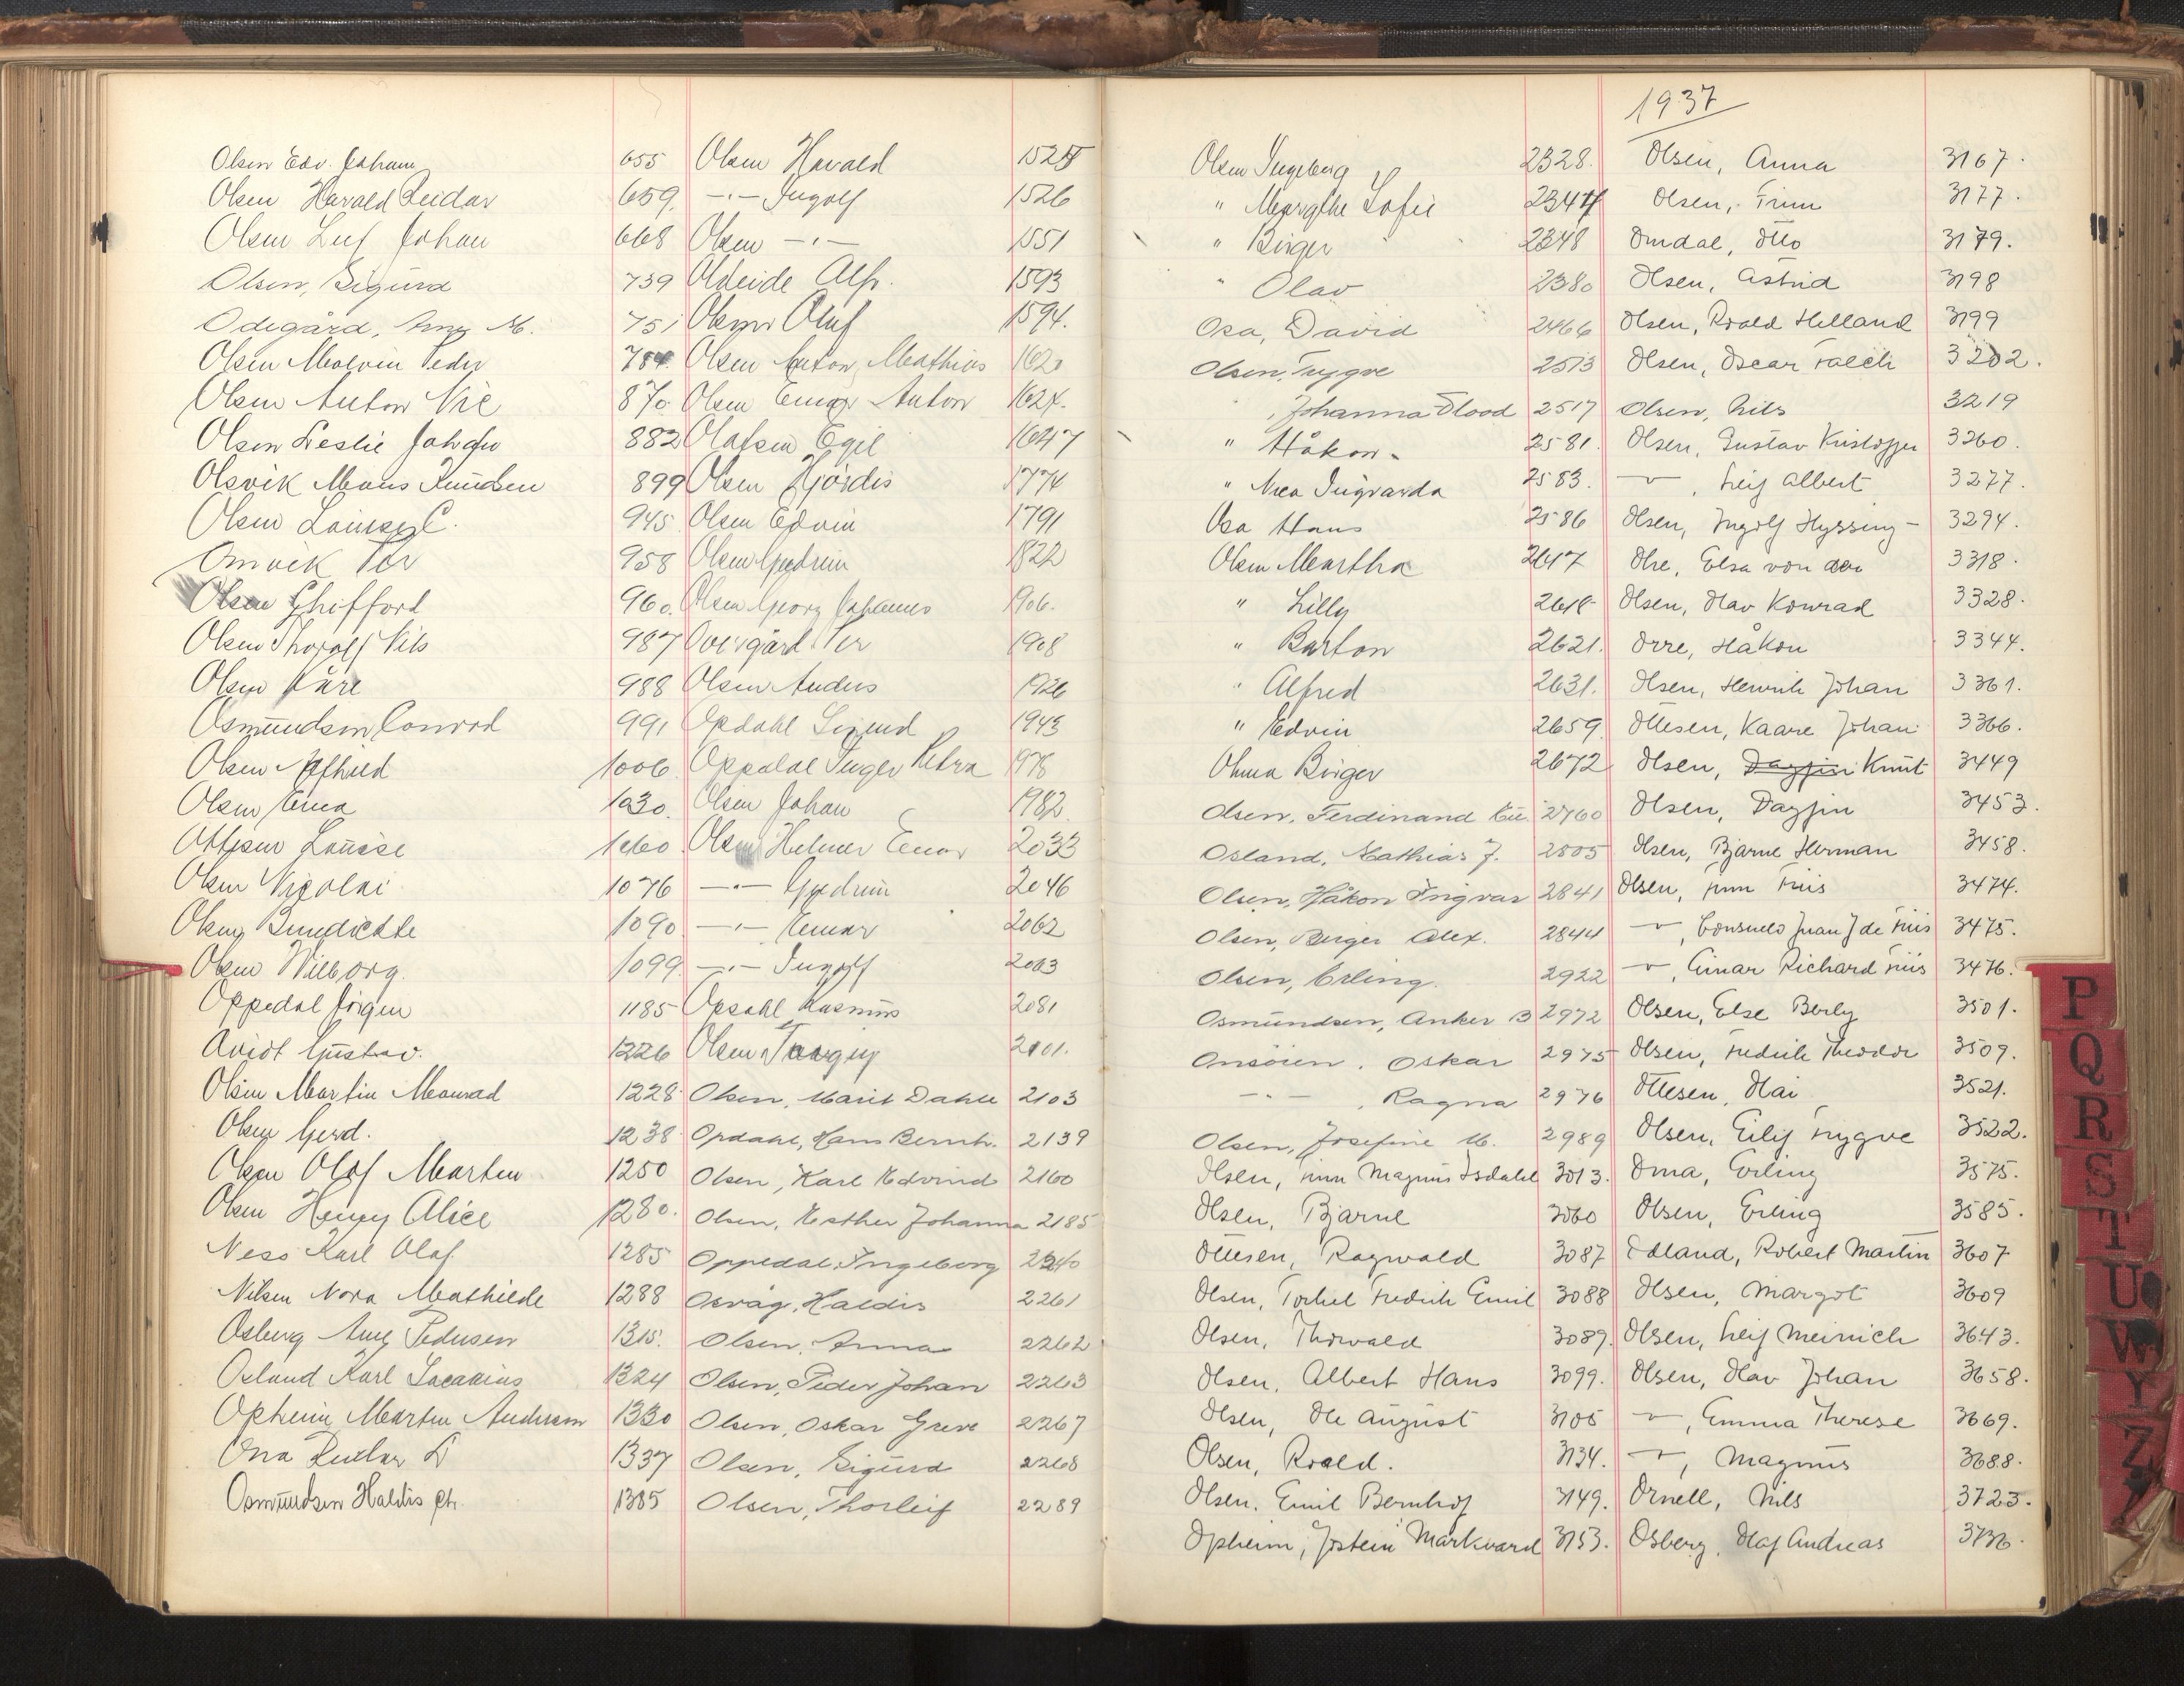 Olsen Edv. Johan 655
Olsen Harald Reidar 659.
Olsen Leif Johan 668
Olsen, Sigurd 739
Odegård, Amy M. 751
Olsen Malvin Peder 784.
Olsen Anton Nic 870
Olsen Leslie Johan 882
Olsvik Mons Knudsen 899
Olsen C. 945
Omvik Per 958
Olsen Ghifford 960.
Olsen Thoralf Nils 987
Olsen Kåre 988
Osmundsen Conrad 991
Olsen 1006
Olsen Erna 1030.
Ottesen Louise 1060
Olsen Nicolai 1076
Olsen Benedickte 1090
Olsen Wilborg. 1099
Oppedal Jörgen 1185
Gustav. 1226
Olsen Martin Monrad 1228
Olsen Gerd. 1238
Olsen Olaf Martin 1250
Olsen Henny Alice 1280.
Ness Karl Olaf 1285
Nilsen Nora Mathilde 1288
Osberg Amy Pedersen 1315.
Osland Karl Zacarius 1324
Opheim Martin Andersen 1330
Ona 1337
Osmundsen Haldis 1385
Olsen Harald 152
-"- Ingolf 1526
Olsen -"- 1551
Oldeide Alfr. 1593
Olsen Oluf 1594.
Olsen Anton Mathias 1620
Olsen Einar Anton 1624.
Olafsen Egil 1647
Olsen Hjördis 1774
Olsen Edvin 1791
Olsen Gudrun 1822
Olsen Georg Johannes 1906.
Overgård Per 1908
Olsen Anders 1926
Opdahl Sigurd 1943
Oppedal Inger Petra 1978
Olsen Johan 1982.
Olsen Helmer Einar 2033
-"- Gudrun 2046
-"- Einar 2062
-"- Ingolf 2063
Opsahl Rasmus 2081
Olsen 2101.
Olsen, Marit Dahle 2103
Opdahl, Hans Bernh. 2139
Olsen, Karl Edvind 2160
Olsen, Esther Johanna 2185
Oppedal, Ingeborg 2240
Osvåg, Haldis 2261
Olsen, Anna 2262
Olsen, Peder Johan 2263
Olsen, Oskar Greve 2267
Olsen, Sigurd 2268
Olsen, Thorleif 2289
Olsen Ingeborg 2328.
" Margthe Sofie 2344
" Birger 2348
" Olav 2380
Osa, David 2466
Olsen, Trygve 2513
" , Johanna Flood 2517
" Håkon 2581.
" Ingvarda 2583.
Osa Hans 2586
Olsen Martha 2617
" Lilly 2618
" Barton 2621.
" Alfred 2631.
" Edvin 2659
Birger 2672
Olsen, Ferdinand 2760
Osland, Mathias J. 2805
Olsen, Håkon Ingvar 2841
Olsen, Birger Alex. 2844
Olsen, Erling. 2922
Osmundsen, Anker B 2972
Onsöien, Oskar 2975
-"- , Ragna 2976
Olsen, Josefine M. 2989
Olsen, Finn Magnus Isdahl 3013.
Olsen, Bjarne 3060
Ottesen, Ragwald 3087
Olsen, Torkel Fredrik Emil 3088
Olsen, Thorwald 3089.
Olsen, Albert Hans 3099.
Olsen, Ole August 3105
Olsen, Roald. 3134.
Olsen, Emil Bernhof 3149.
Opheim, Jostein Markvard 3153.
1937
Olsen, Anna 3167.
Olsen, Finn 3177.
Omdal, Otto 3179.
Olsen, Astrid 3198
Olsen, Roald Helland 3199
Olsen, Oscar Falch 3202.
Olsen, Nils 3219
Olsen, Gustav Kristoffer 3260.
" , Leif Albert 3277.
Olsen, Ingolf Hyssing- 3294.
Ohe, Elsa von der 3318.
Olsen, Olav Konrad 3328.
Orre, Håkon 3344.
Olsen, Henrik Johan 3361.
Ottesen, Kaare Johan 3366.
Olsen, Dagfin Knut 3449
Olsen, Dagfin 3453.
Olsen, Bjarne Herman 3458.
Olsen, Finn Friis 3474.
" , Consuelo Juan J de Friis 3475.
" , Einar Richard Friis 3476.
Olsen, Else Berly 3501.
Olsen, Fredrik Theodor 3509.
Ottesen, Olai 3521.
Olsen, Eilif Trygve 3522.
Oma, Erling 3575.
Olsen, Erling 3585.
Edland, Robert Martin 3607
Olsen, Margot 3609
Olsen, Leif Meinich 3643.
Olsen, Olav Johan 3658.
" , Emma Therese 3669.
" , Magnus 3688.
Ornell, Nils 3723.
Osberg, Olaf Andreas 3736.
P
Q
R
S
T
U
W
Y
Z